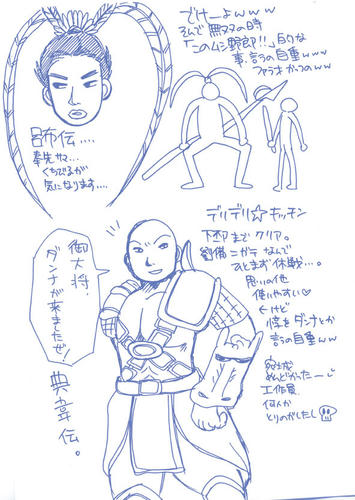 でけーよwww
そんで無双の時
「このムシ野郎!!」的な
事、言うの自重www
ファラオかつのww
呂布伝....
奉先サマ...
くちでるが
気になります....
デリデリ☆キッチン
下邳までクリア。
劉備ニガテなんで
ひとまず休戦...。
思いの他
使いやすい♡
←けど
惇をダンナとか
言うの自重ww
宛城
めんどかったー
工作員
何人か
とりのがしたし
御大将、
ダンナが来てたぜ!
典韋伝。